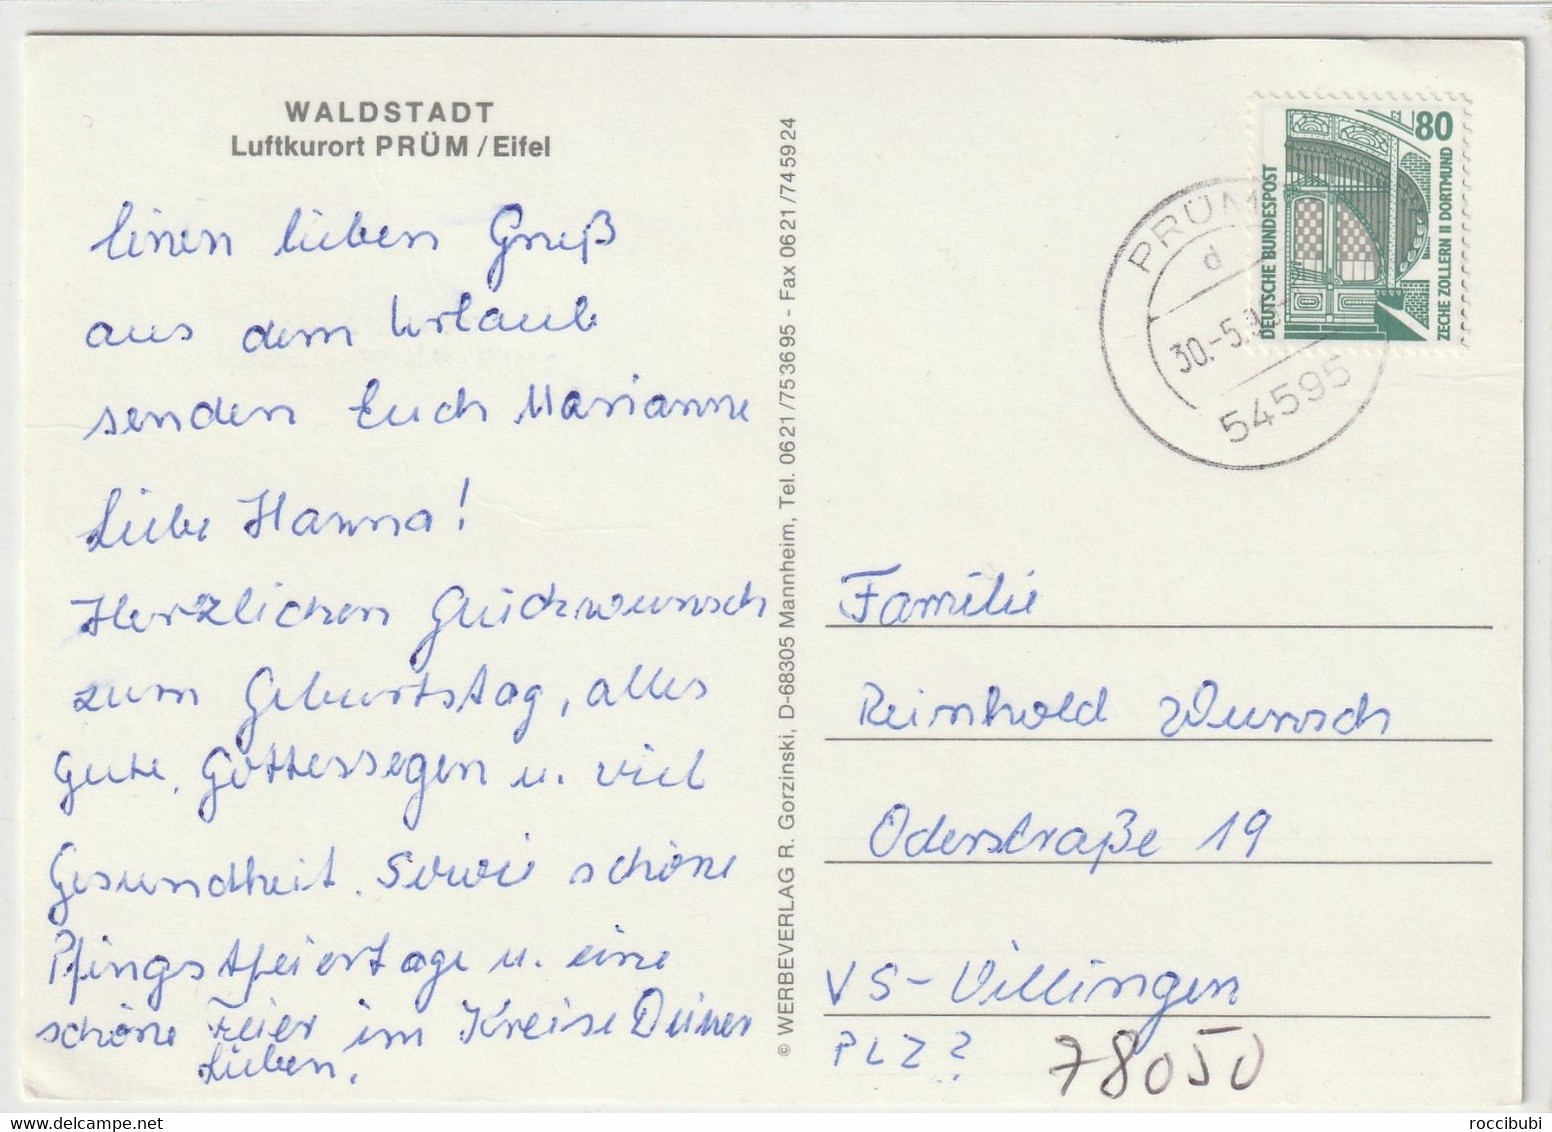 WALDSTADT
Luftkurort PRÜM / Eifel
Einen lieben Gruß
aus dem Urlaub
senden Euch Marianne
Liebe Hanna!
Herzlichen Glückwunsch
zum Geburtstag, alles
Gute, Gottessegen u. viel
Gesundheit. Sowie schöne
Pfingstfeiertage u. eine
schöne Feier im Kreise Deiner
Lieben.
© WERBEVERLAG R. Gorzinski, D-68305 Mannheim, Tel. 0621/753695 - Fax 0621/745924
DEUTSCHE BUNDESPOST
80
ZECHE ZOLLERN II DORTMUND
PRÜM
d
30.-5.
54595
Familie
Reinhold Wunsch
Oderstraße 19
VS-Villingen
PLZ? 78050
roccibubi